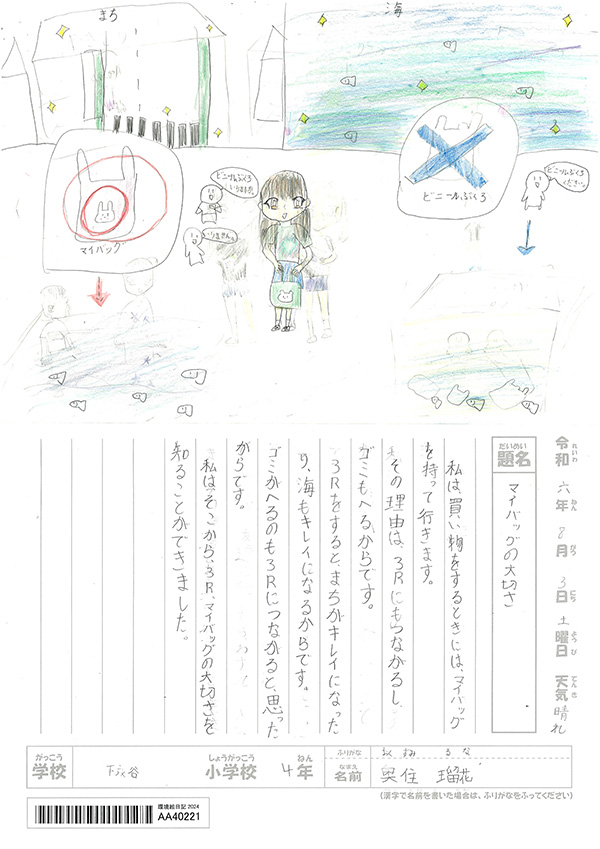 まち
海
ビニールぶくろ
いりますか
いりません。
マイバッグ
ビニールぶくろ
ビニールぶくろ
ください。
令和 六年 8月 3日 土曜日 天気 晴れ
れいわ ねん がつ にち ようび てんき
だいめい
題名
マイバッグの大切さ
私は、買い物をするときには、マイバッグ
を持って行きます。
その理由は、3Rにもつながるし、
ゴミもへるからです。
3Rをすると、まちがキレイになった
り、海もキレイになるからです。
ゴミがへるのも3Rにつながると、思った
からです。
私は、そこから、3R、マイバッグの大切さを
知ることができました。
がっこう
学校
しょうがっこう
小学校
4年
ねん
ふりがな
なまえ
名前
奥住 瑠花
(漢字で名前を書いた場合は、ふりがなをふってください)
環境絵日記2024
AA40221